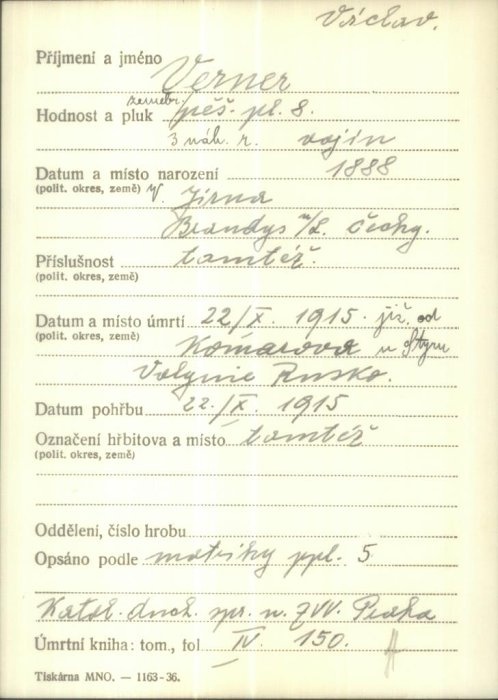 Václav.
Příjmení a jméno Verner
Hodnost a pluk zeměbr. pěš. pl. 8.
3 náh. r. vojín
Datum a místo narození 1888
(polit. okres, země) v. Jirna
Brandys n/L. Čechy.
Příslušnost tamtéž.
(polit. okres, země)
Datum a místo úmrtí 22/X. 1915. již. od
(polit. okres, země) Komarova u Styru
Volynie Rusko.
Datum pohřbu 22./X. 1915
Označení hřbitova a místo tamtéž
(polit. okres, země)
Oddělení, číslo hrobu
Opsáno podle matriky ppl. 5
Katol. duch. spr. u ZVV. Praha
Úmrtní kniha: tom., fol IV. 150.
Tiskárna MNO. — 1163-36.